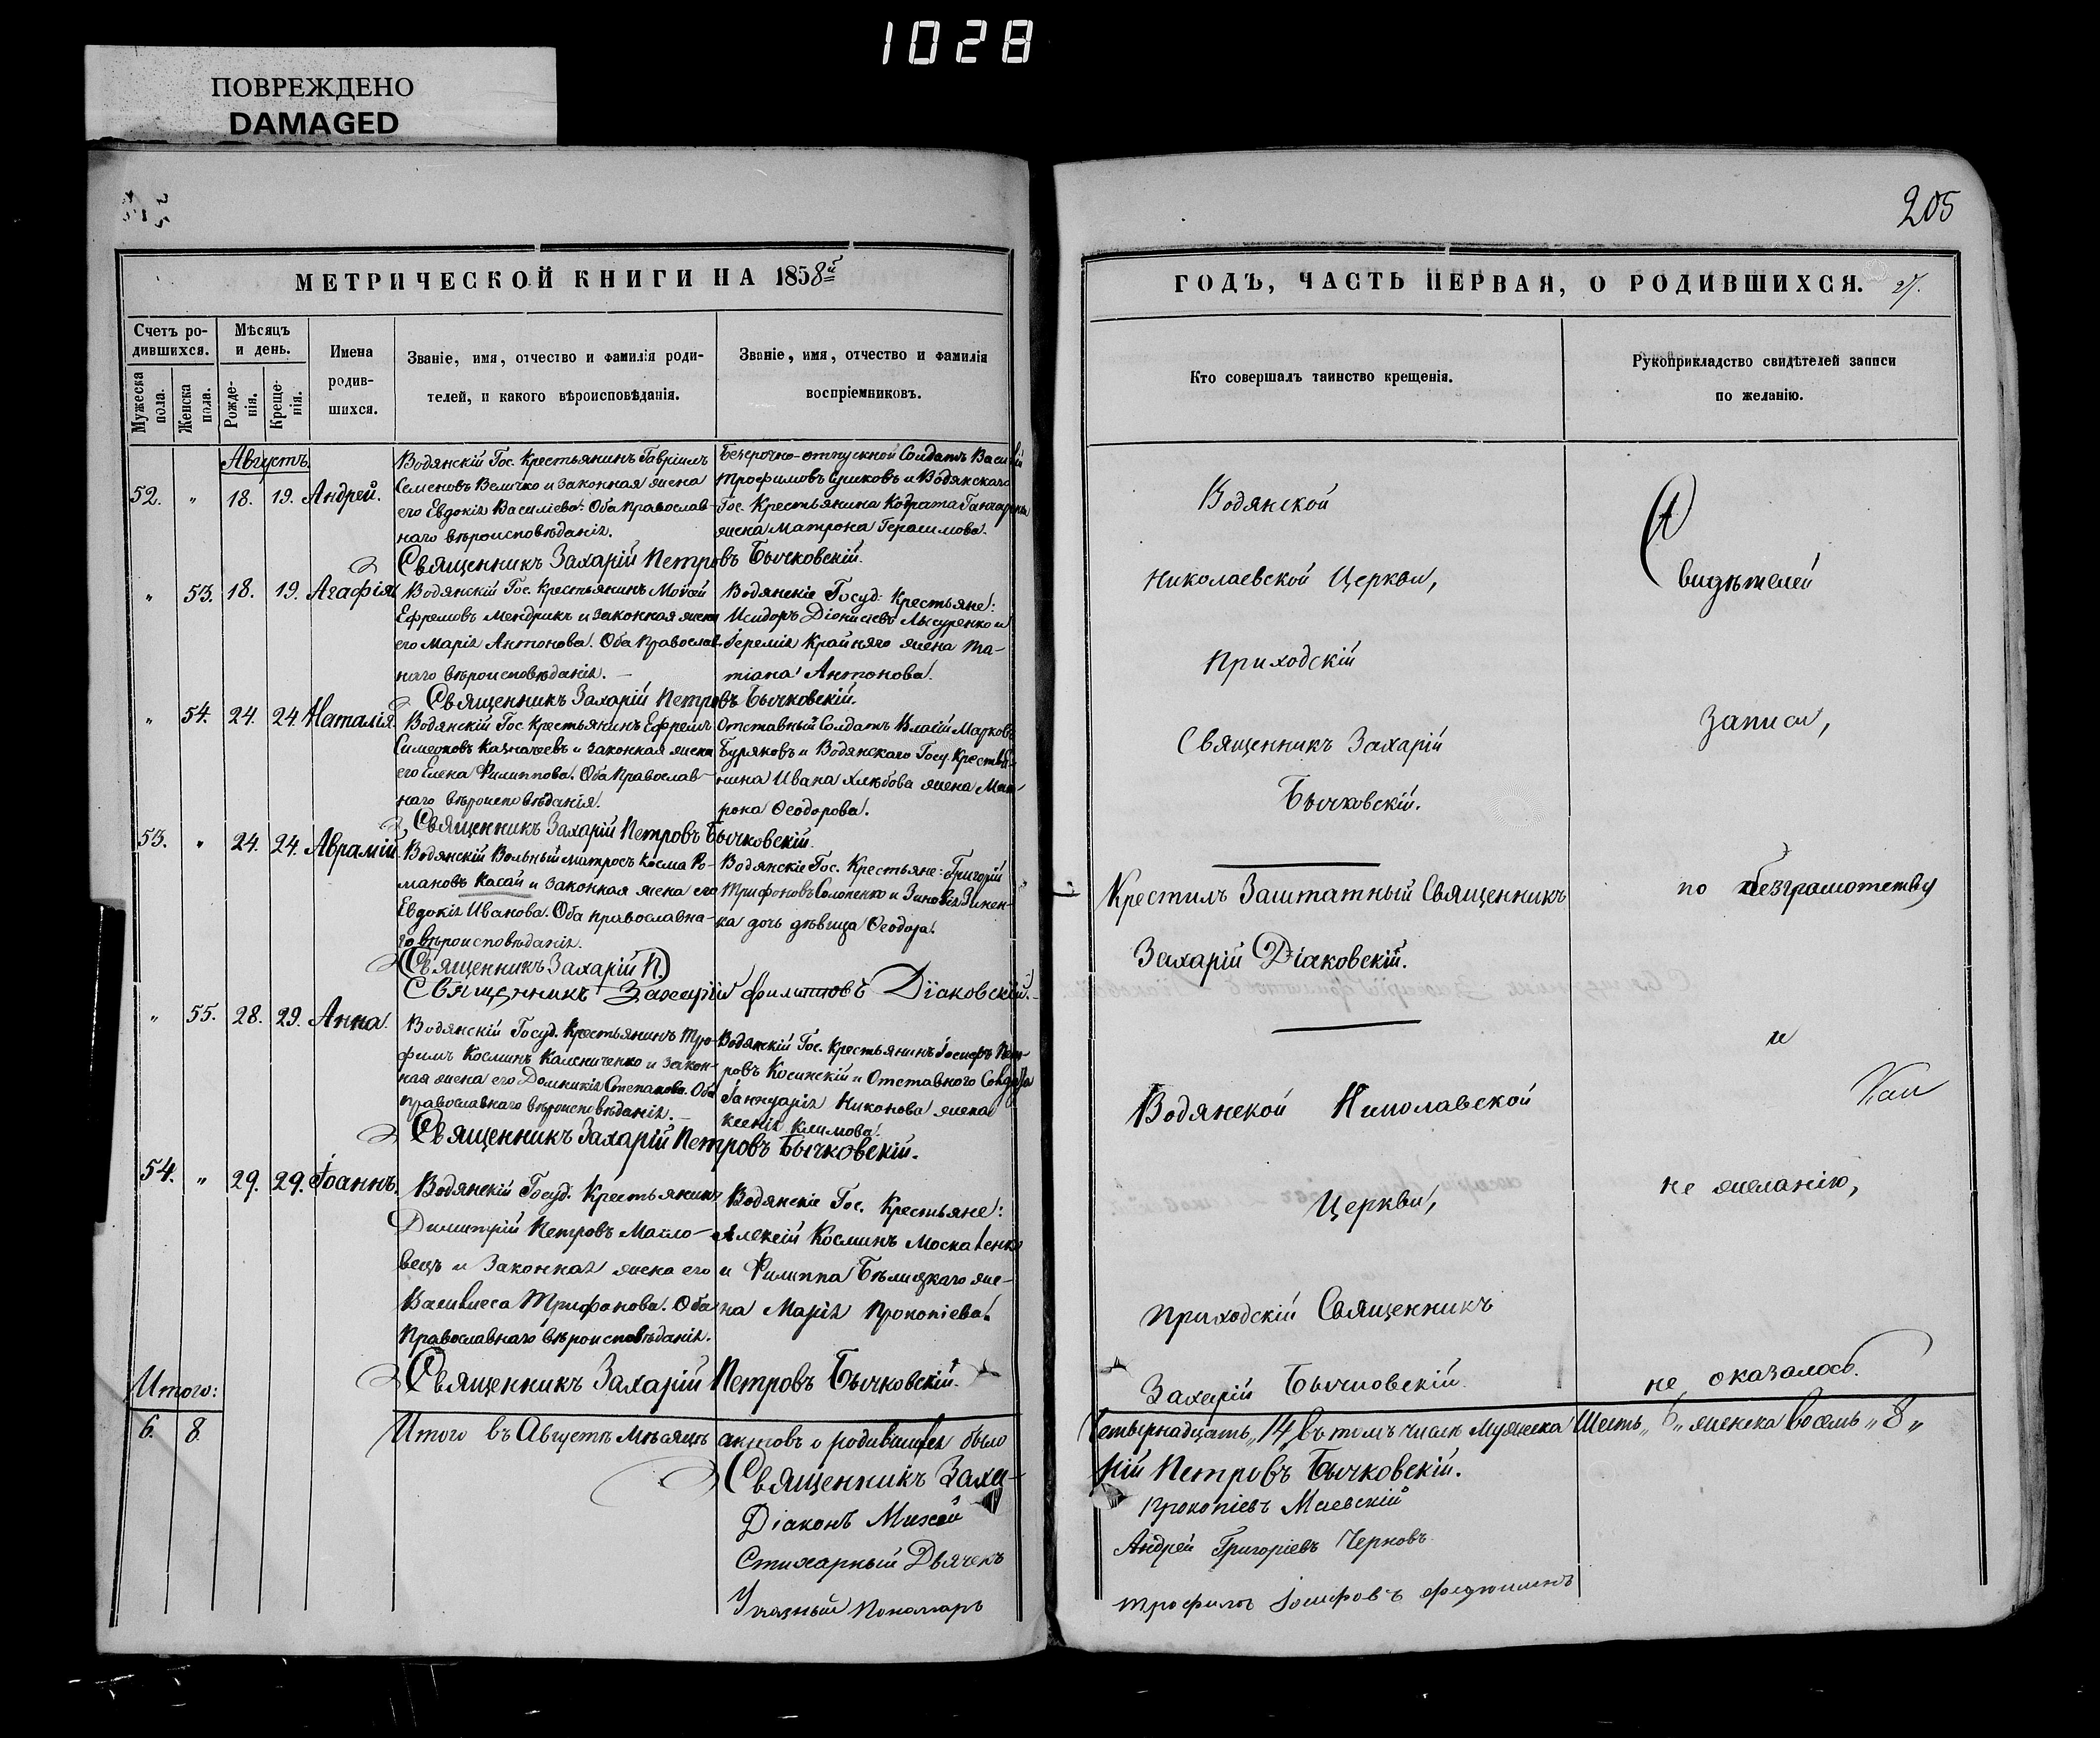 1028
ПОВРЕЖДЕНО
DAMAGED
205
МЕТРИЧЕСКОЙ КНИГИ НА 1858й
ГОДЪ, ЧАСТЬ ПЕРВАЯ, О РОДИВШИХСЯ. 27.
Счетъ ро-
дившихся.
Мужеска
пола.
Женска
пола.
Мѣсяцъ
и день.
Рожде-
нія.
Креще-
нія.
Имена
родив-
шихся.
Званіе, имя, отчество и фамилія роди-
телей, и какого вѣроисповѣданія.
Званіе, имя, отчество и фамилія
воспріемниковъ.
Кто совершалъ таинство крещенія.
Рукоприкладство свидѣтелей записи
по желанію.
Августъ
52. " 18. 19. Андрей.
Водянскій Гос. Крестьянинъ Гавріилъ
Семеновъ Величко и законная жена
его Евдокія Василіева. Оба Православ-
наго вѣроисповѣданія.
Безсрочно-отпускной Солдатъ Василій
Трофимовъ и Водянскаго
Гос. Крестьянина Кодрата
жена Матрона Герасимова.
Священникъ Захарій Петровъ Бычковскій.
" 53. 18. 19. Агафія
Водянскій Гос. Крестьянинъ Моисей
Ефремовъ Мендрикъ и законная жена
его Марія Антонова. Оба Православ-
наго вѣроисповѣданія. —
Водянскіе Госуд. Крестьяне:
Исидоръ Діонисіевъ и
Іереміи Крайняго жена Та-
тіана Антонова.
Священникъ Захарій Петровъ Бычковскій.
" 54. 24. 24 Наталія
Водянскій Гос. Крестьянинъ Ефремъ
Симеоновъ Казначеевъ и законная жена
его Елена Филиппова. Оба Православ-
наго вѣроисповѣданія.
Отставный Солдатъ Власій Марковъ
Буряковъ и Водянскаго Госу. Крестья-
нина Ивана Хлѣбова жена Мат-
рона Ѳеодорова.
Священникъ Захарій Петровъ Бычковскій.
53. " 24. 24. Аврамій
Водянскій Вольный матросъ Косма Ро-
мановъ Касай и законная жена его
Евдокія Иванова. Оба православна-
го вѣроисповѣданія.
Водянскіе Гос. Крестьяне: Григорій
Трифоновъ Солопенко и Зиновія Зинен-
ка дочь дѣвица Ѳеодора.
(Священникъ Захарій П.)
Священникъ Захарій Филипповъ Діаковскій.
" 55. 28. 29. Анна.
Водянскій Госуд. Крестьянинъ Тро-
фимъ Косминъ Калениченко и закон-
ная жена его Домникія Степанова. Оба
православнаго вѣроисповѣданія. —
Водянскій Гос. Крестьянинъ Іосифъ Пет-
ровъ Косинскій и Отставного Солдата
Іаннуарія Никонова жена
Ксенія Климова.
Священникъ Захарій Петровъ Бычковскій.
54. " 29. 29. Іоаннъ.
Водянскій Госуд. Крестьянинъ
Димитрій Петровъ Мало-
вецъ и Законная жена его
Василисса Трифонова. Оба
Православнаго вѣроисповѣданія.
Водянскіе Гос. Крестьяне:
Алексій Косминъ Москаленко
и Филиппа Бѣлицкаго же-
на Марія Прокопіева.
Священникъ Захарій Петровъ Бычковскій.
Итого:
6. 8.
Итого въ Августѣ Мѣсяцѣ актовъ о родившихся было
Священникъ Заха-
Діаконъ Мисей
Стихарный Дьячекъ
Указный Пономарь
Водянской
Николаевской Церкви,
Приходскій
Священникъ Захарій
Бычковскій.
Крестилъ Заштатный Священникъ
Захарій Діаковскій.
Водянской Николаевской
Церкви,
Приходскій Священникъ
Захарій Бычковскій.
Свидѣтелей
Записи,
по безграмотству
и
не желанію,
не оказалось.
Четырнадцать "14" въ томъ числѣ Мужеска Шесть "6" женска восемь "8"
рій Петровъ Бычковскій.
Прокопіевъ Маевскій
Андрей Григоріевъ Черновъ
Трофимъ Іосифовъ